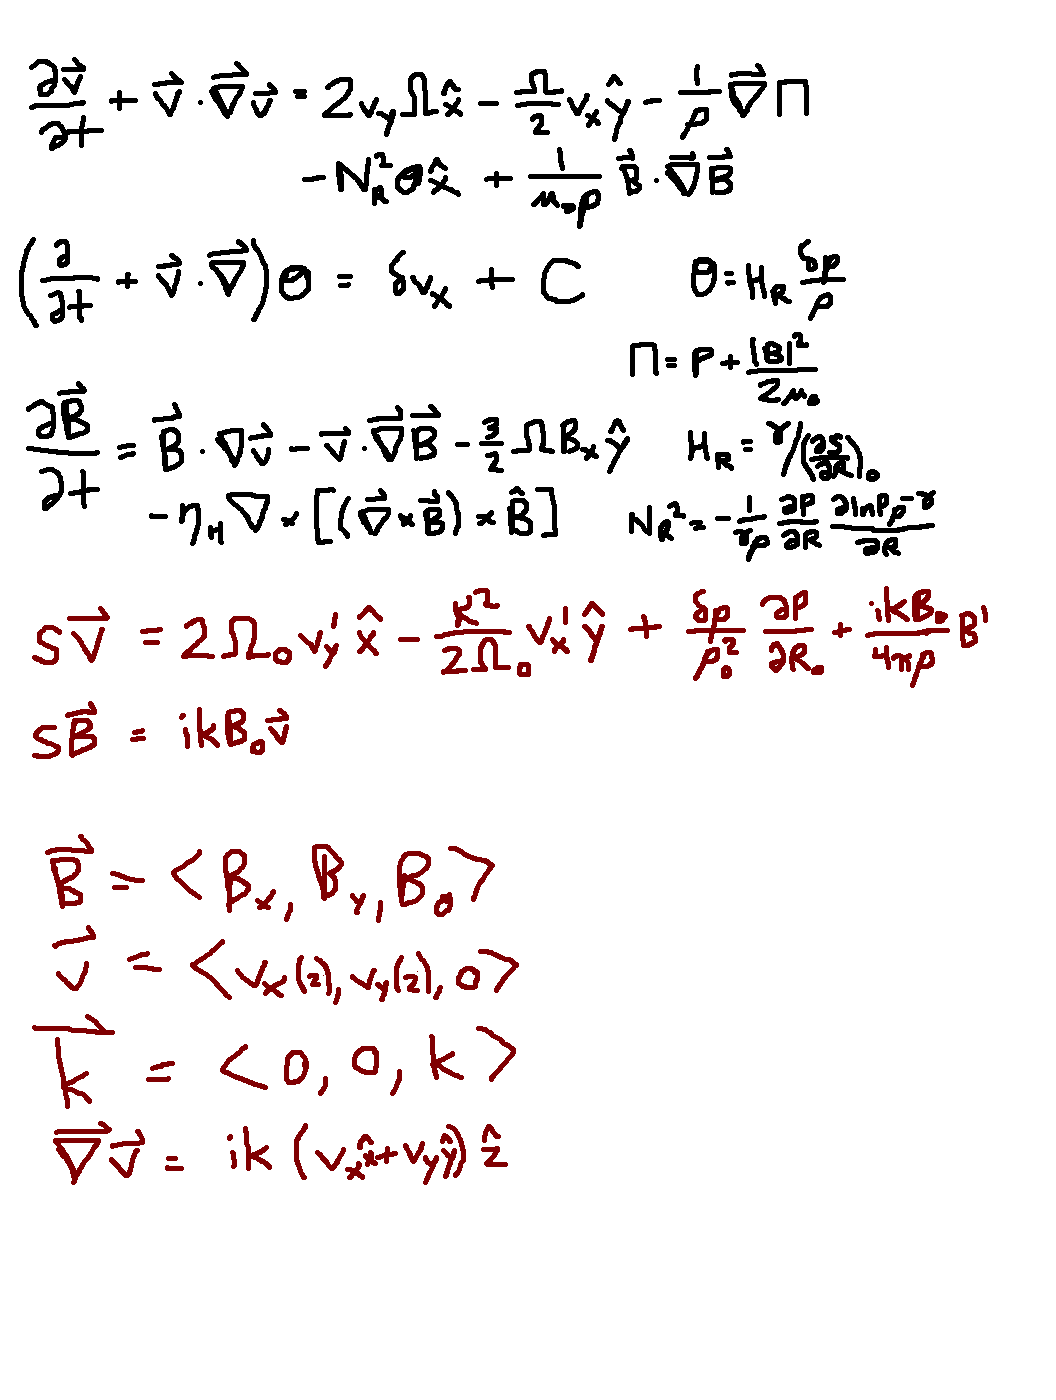 ∂v⃗/∂t + v⃗ · ∇⃗v⃗ = 2v_yΩx̂ − Ω/2 v_xŷ − 1/ρ ∇⃗Π
− N_R²θx̂ + 1/(μ₀ρ) B⃗ · ∇⃗B⃗
(∂/∂t + v⃗ · ∇⃗)θ = δv_x + C θ = H_R δρ/ρ
Π = P + |B|²/2μ₀
∂B⃗/∂t = B⃗ · ∇v⃗ − v⃗ · ∇⃗B⃗ − 3/2 ΩB_xŷ H_R = γ/(∂S/∂R)₀
− η_H ∇ × [(∇⃗ × B⃗) × B̂] N_R² = − 1/(γρ) ∂P/∂R ∂lnPρ^−γ/∂R
sv⃗ = 2Ω₀v_y′x̂ − K²/2Ω₀ v_x′ŷ + δρ/ρ₀² ∂P/∂R₀ + ikB₀/4πρ B′
sB⃗ = ikB₀v⃗
B⃗ = <B_x, B_y, B₀>
v⃗ = <v_x(z), v_y(z), 0>
k⃗ = <0, 0, k>
∇⃗v⃗ = ik (v_xx̂ + v_yŷ) ẑ